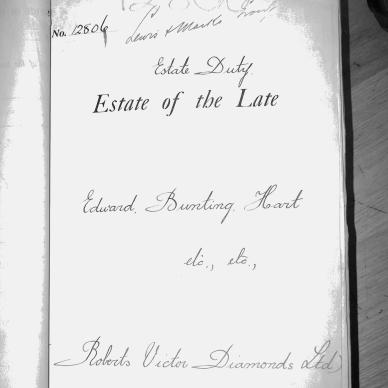 No. 12806
Lewis & Marks
Estate Duty
Estate of the Late
Edward Bunting Hart
etc., etc.,
Roberts Victor Diamonds Ltd